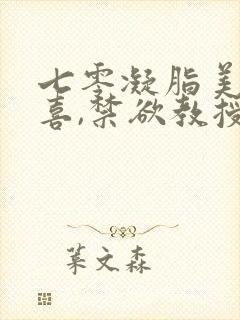 七零凝脂美
喜,禁欲教授
叶文森